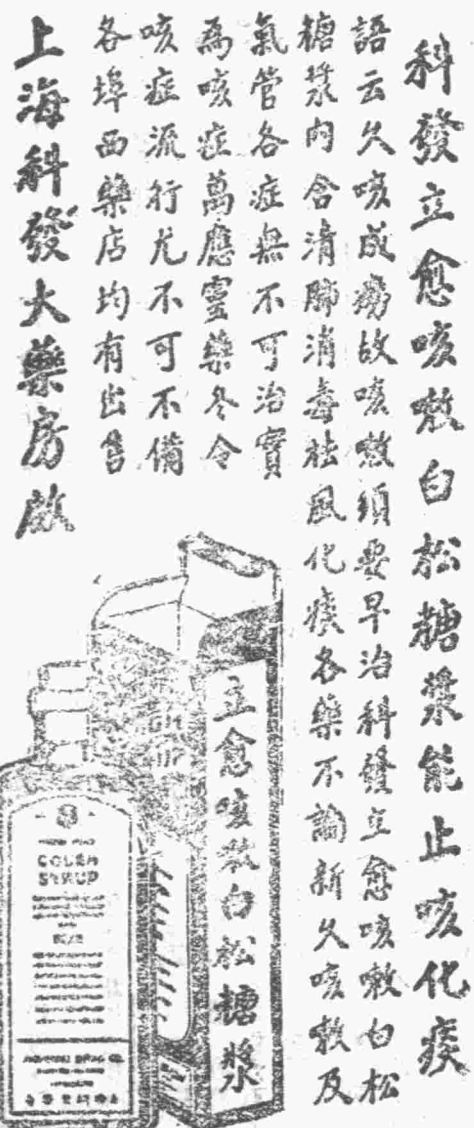 科發立愈咳嗽白松糖漿能止咳化痰
語云久咳成癆故咳嗽須要早治科發立愈咳嗽白松
糖漿内含清肺消毒祛風化痰各藥不論新久咳嗽及
氣管各症無不可治實
爲咳症萬應靈藥冬令
咳症流行尤不可不備
各埠西藥店均有出售
上海科發大藥房啟
立愈咳嗽白松糖漿
COUGH
SYRUP